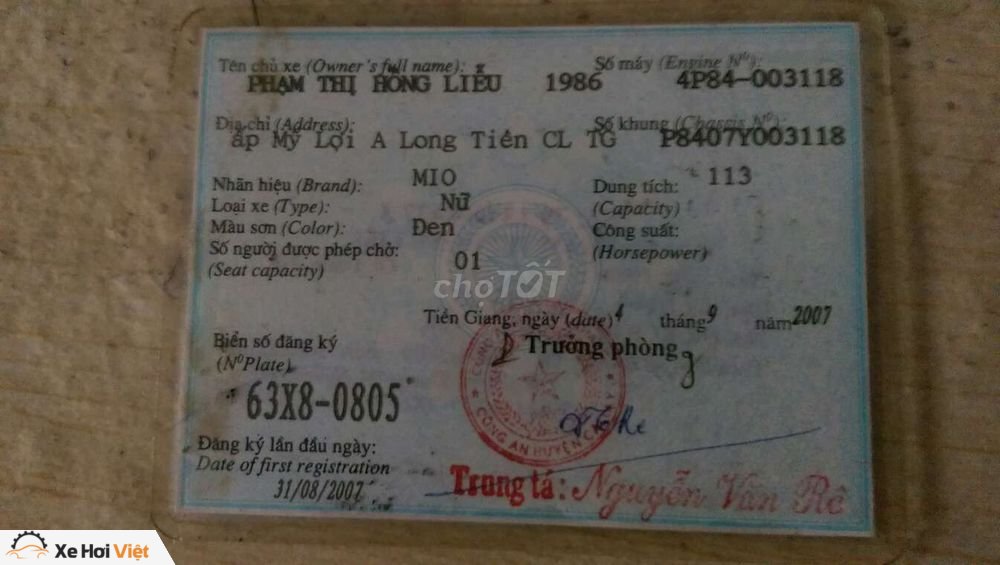 Tên chủ xe (Owner's full name):
PHẠM THỊ HỒNG LIỄU 1986
Số máy (Engine Nº):
4P84-003118
Địa chỉ (Address):
ấp Mỹ Lợi A Long Tiên CL TG
Số khung (Chassis Nº):
P8407Y003118
Nhãn hiệu (Brand): MIO
Loại xe (Type): Nữ
Màu sơn (Color): Đen
Số người được phép chở: 01
(Seat capacity)
Dung tích: 113
(Capacity)
Công suất:
(Horsepower)
chợTỐT
Tiền Giang, ngày (date) 4 tháng 9 năm 2007
Trưởng phòng
Biển số đăng ký
(NºPlate)
63X8-0805
CÔNG AN HUYỆN
Đăng ký lần đầu ngày:
Date of first registration
31/08/2007
Trung tá: Nguyễn Văn Rê
Xe Hơi Việt